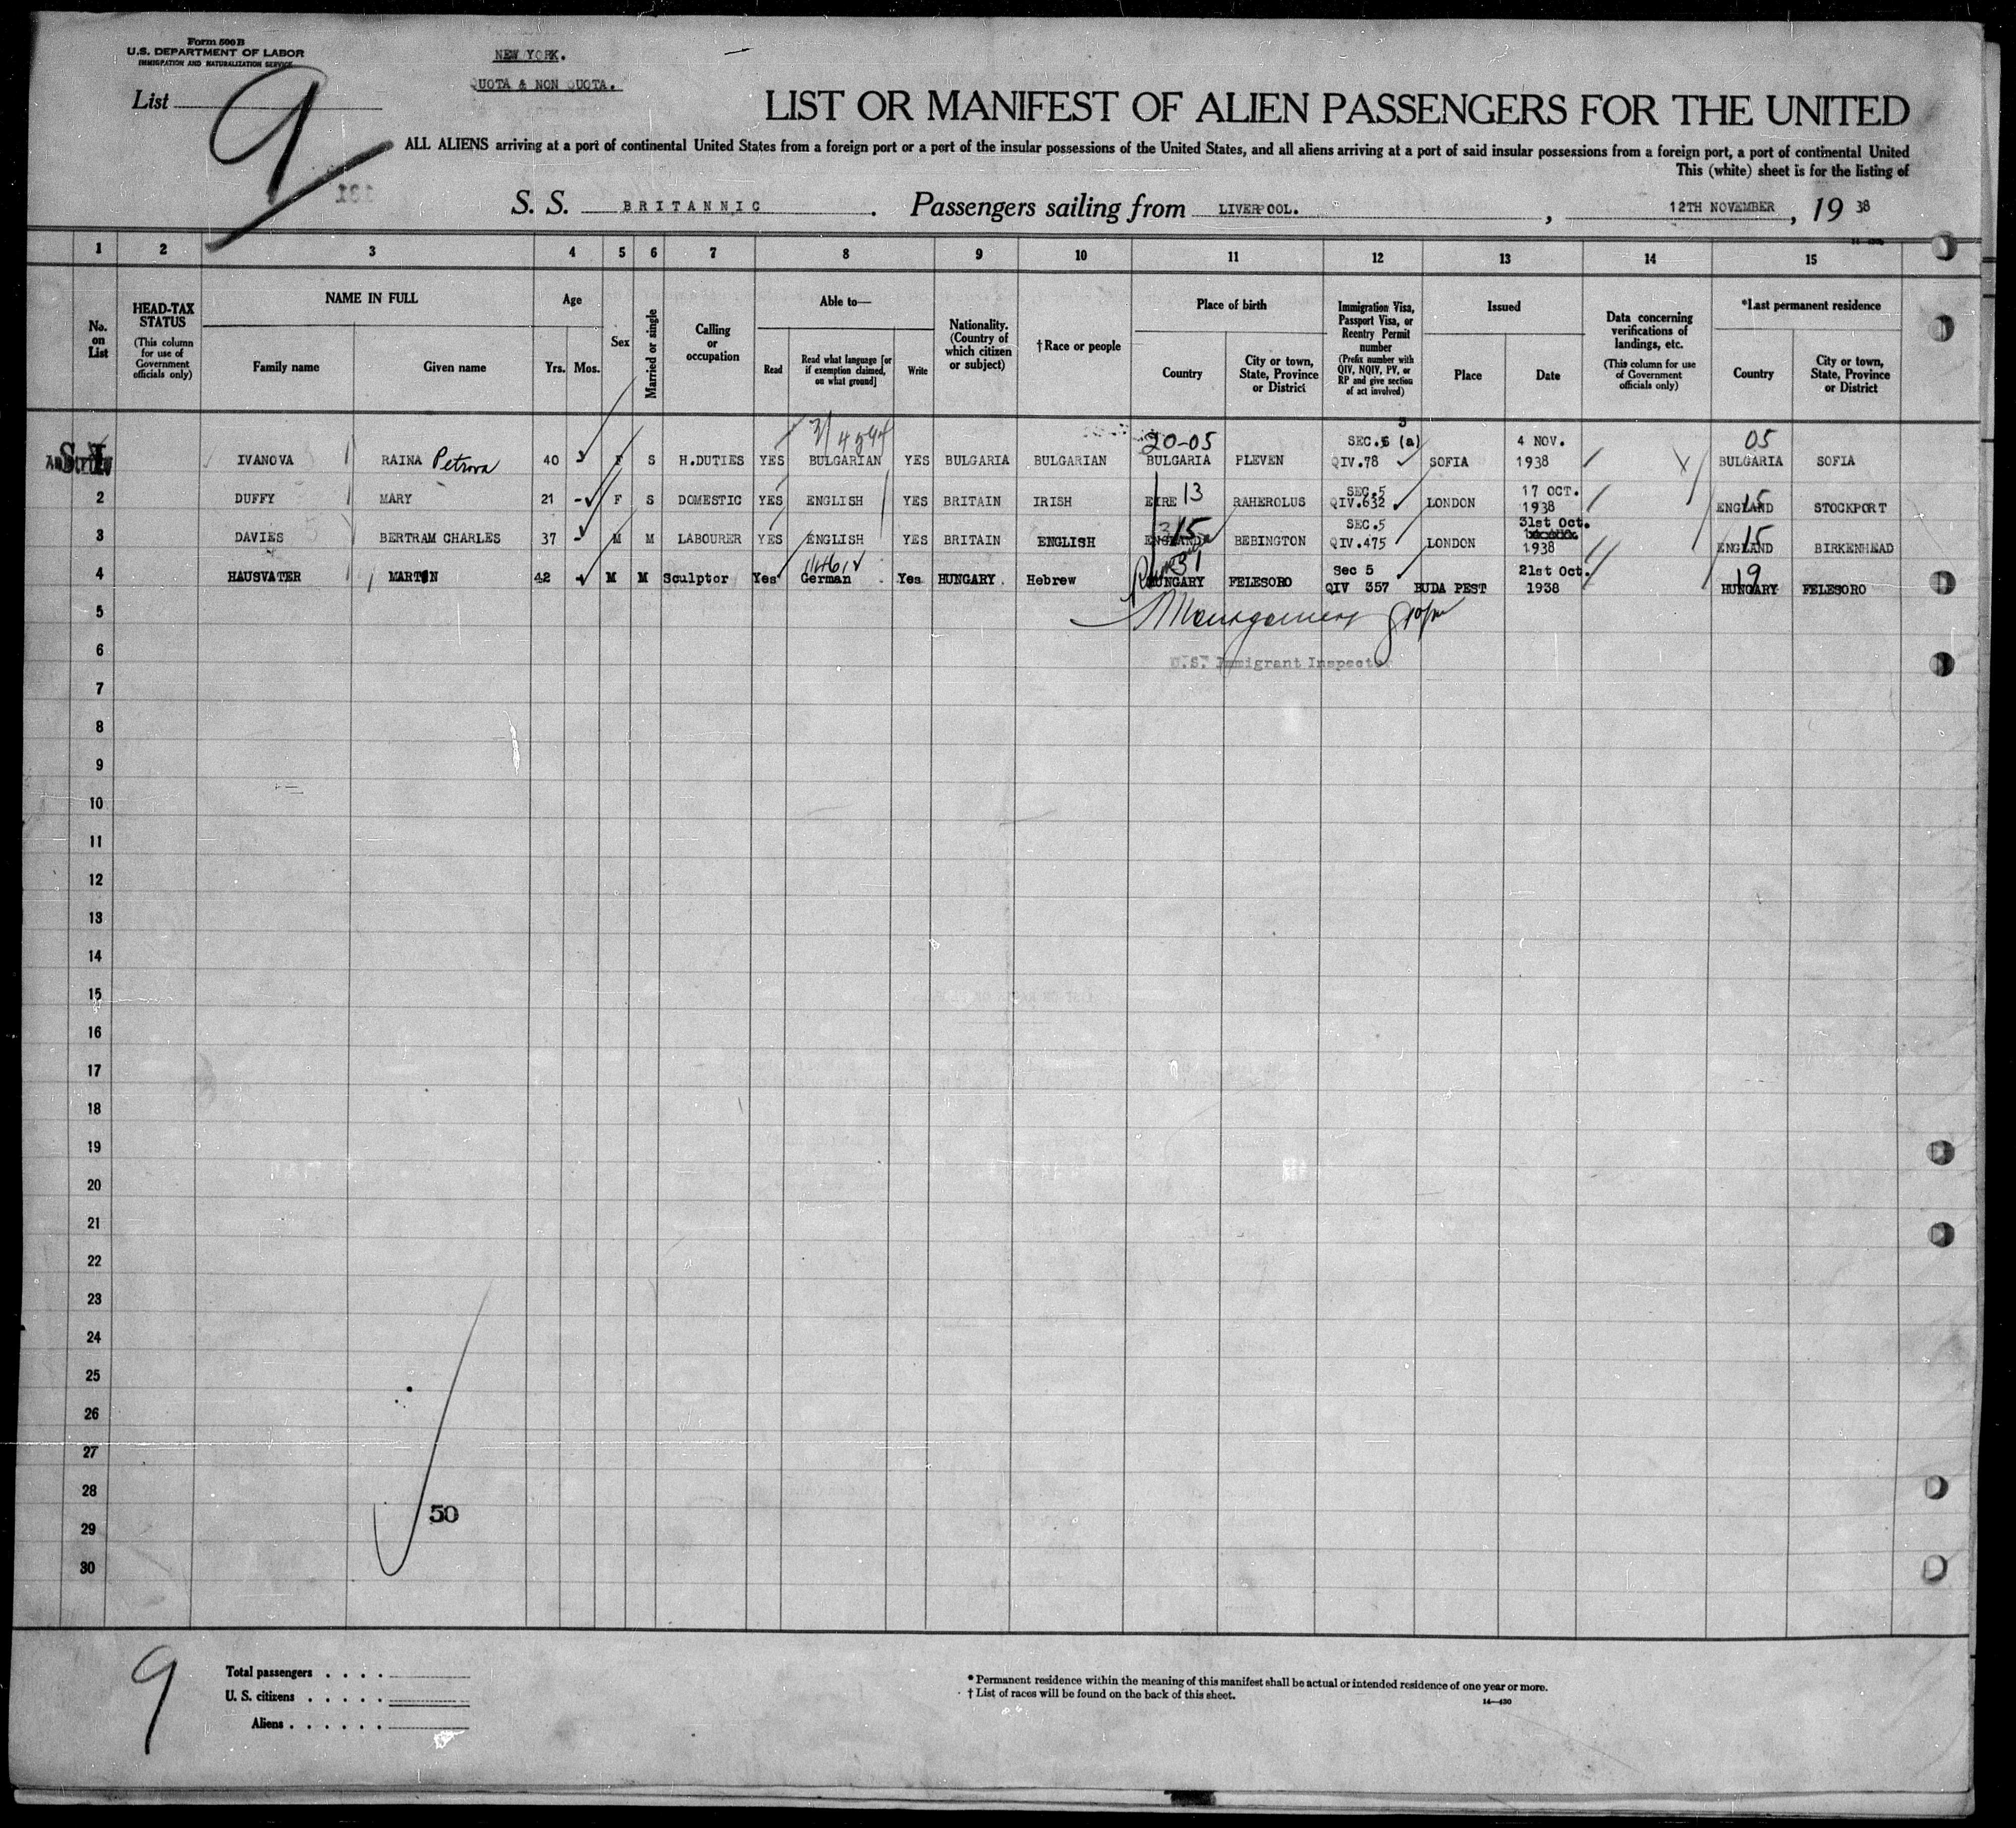 Form 500 B
U.S. DEPARTMENT OF LABOR
IMMIGRATION AND NATURALIZATION SERVICE
NEW YORK.
QUOTA & NON QUOTA.
List 9
LIST OR MANIFEST OF ALIEN PASSENGERS FOR THE UNITED
ALL ALIENS arriving at a port of continental United States from a foreign port or a port of the insular possessions of the United States, and all aliens arriving at a port of said insular possessions from a foreign port, a port of continental United
This (white) sheet is for the listing of
131
S. S. BRITANNIC. Passengers sailing from LIVERPOOL. , 12TH NOVEMBER , 19 38
1 2 3 4 5 6 7 8 9 10 11 12 13 14 15
No. on List
HEAD-TAX STATUS (This column for use of Government officials only)
NAME IN FULL
Family name Given name
Age
Yrs. Mos.
Sex
Married or single
Calling or occupation
Able to—
Read
Read what language [or if exemption claimed, on what ground]
Write
Nationality. (Country of which citizen or subject)
†Race or people
Place of birth
Country
City or town, State, Province or District
Immigration Visa, Passport Visa, or Reentry Permit number (Prefix number with QIV, NQIV, PV, or RP and give section of act involved)
Issued
Place Date
Data concerning verifications of landings, etc. (This column for use of Government officials only)
*Last permanent residence
Country
City or town, State, Province or District
20-05 SEC.5 (a) 4 NOV. 05
IVANOVA RAINA Petrova 40 F S H.DUTIES YES BULGARIAN YES BULGARIA BULGARIAN BULGARIA PLEVEN QIV.78 SOFIA 1938 BULGARIA SOFIA
13 SEC.5 17 OCT. 15
2 DUFFY MARY 21 - F S DOMESTIC YES ENGLISH YES BRITAIN IRISH EIRE RAHEROLUS QIV.632 LONDON 1938 ENGLAND STOCKPORT
15 SEC.5 31st Oct. 15
3 DAVIES BERTRAM CHARLES 37 - M M LABOURER YES ENGLISH YES BRITAIN ENGLISH ENGLAND BEBINGTON QIV.475 LONDON 1938 ENGLAND BIRKENHEAD
31 Sec 5 21st Oct. 19
4 HAUSVATER MARTIN 42 M M Sculptor Yes German Yes HUNGARY. Hebrew HUNGARY FELESORO QIV 357 BUDA PEST 1938 HUNGARY FELESORO
5
Montgomery
6
U.S. Immigrant Inspector
7
8
9
10
11
12
13
14
15
16
17
18
19
20
21
22
23
24
25
26
27
28
50
29
30
9
Total passengers . . . .
U. S. citizens . . . . .
Aliens . . . . . .
* Permanent residence within the meaning of this manifest shall be actual or intended residence of one year or more.
† List of races will be found on the back of this sheet.
14—430